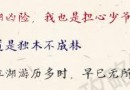 凶险，我也是担心少爷
是独木不成林
江湖游历多时，早已无所